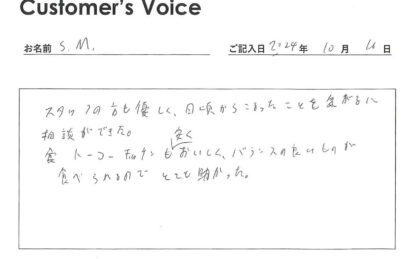 Customer's Voice
お名前 S.M. ご記入日 2024年 10月 日
スタッフの方も優しく、日頃からこまったことを気がるに
相談ができた。
安く
トーコーキッチンもおいしく、バランスの良いものが
食べられるので とても助かった。